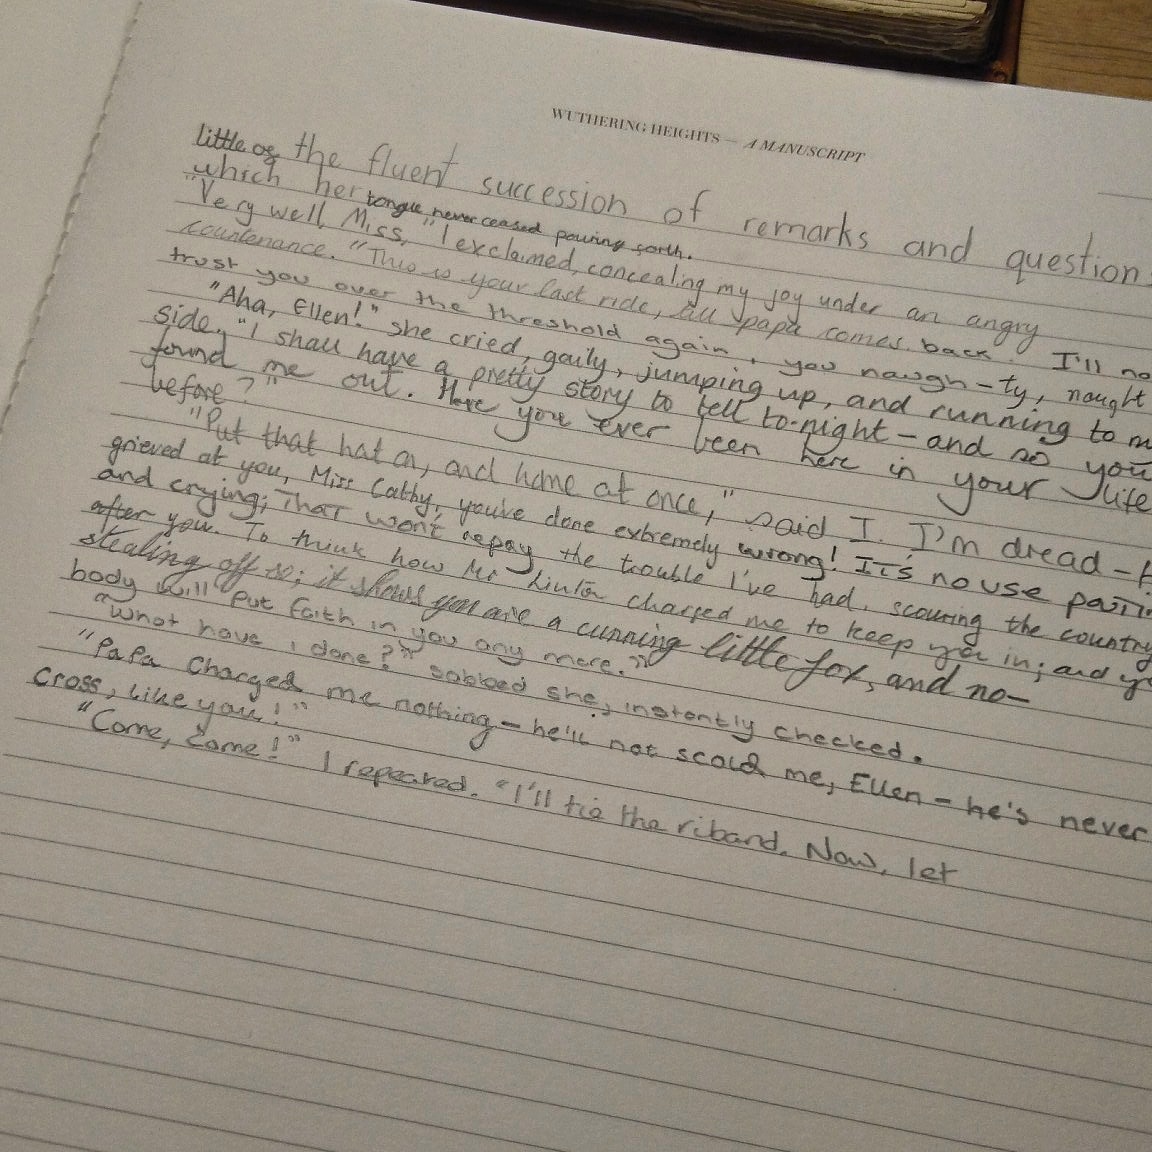 WUTHERING HEIGHTS — A MANUSCRIPT
little of the fluent succession of remarks and question
which her tongue never ceased pouring forth.
"Very well, Miss," I exclaimed, concealing my joy under an angry
countenance. "This is your last ride, till papa comes back. I'll no
trust you over the threshold again, you naugh-ty, naught
"Aha, Ellen!" she cried, gaily, jumping up, and running to m
side. "I shall have a pretty story to tell to-night - and so you
found me out. Have you ever been here in your life
before?"
"Put that hat on, and home at once," said I. I'm dread-f
grieved at you, Miss Cathy, you've done extremely wrong! It's no use pouti
and crying; That won't repay the trouble I've had, scouring the country
after you. To think how Mr Linton charged me to keep you in; and y
stealing off so; it shows you are a cunning little fox, and no-
body will put faith in you any more."
"What have I done?" sobbed she, instantly checked.
"PaPa Charged me nothing - he'll not scold me, Ellen - he's never
Cross, Like you!"
"Come, Come!" I repeated. "I'll tie the riband. Now, let